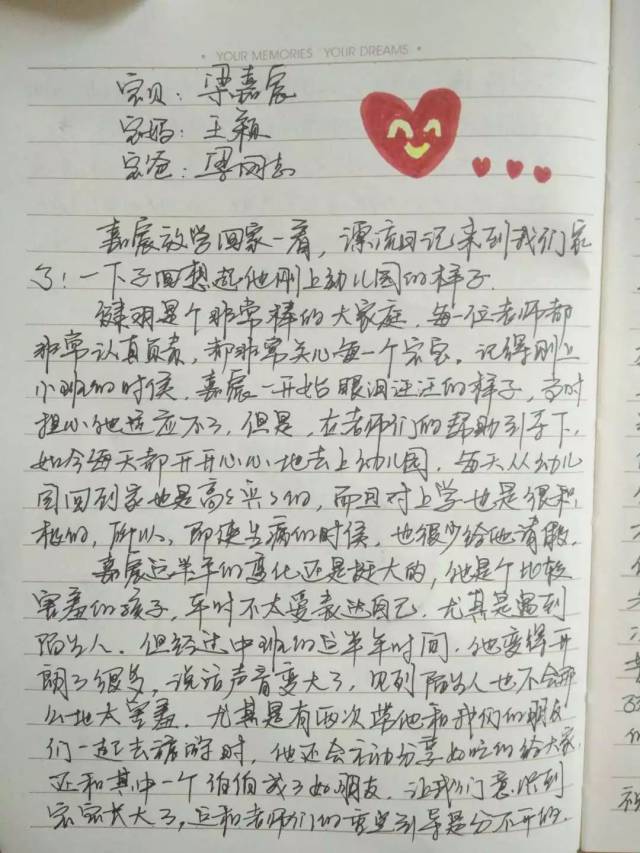 • YOUR MEMORIES YOUR DREAMS •
宝贝：梁嘉宸
宝妈：王颖
宝爸：梁网志
嘉宸放学回家一看，漂流日记来到我们家
了！一下子回想起他刚上幼儿园的样子.
是个非常棒的大家庭，每一位老师都
非常认真负责，都非常关心每一个宝宝。记得刚上
小班的时候，嘉宸一开始眼泪汪汪的样子，当时
担心他适应不了，但是，在老师们的帮助引导下，
如今每天都开开心心地去上幼儿园，每天从幼儿
园回到家也是高高兴兴的，而且对上学也是很积
极的，所以，即使生病的时候，也很少给他请假。
嘉宸这半年的变化还是挺大的，他是个比较
害羞的孩子，平时不太爱表达自己，尤其是遇到
陌生人。但经过中班的这半年时间，他变得开
朗了很多，说话声音变大了，见到陌生人也不会那
么地太害羞。尤其是有两次带他和我们的朋友
们一起去旅游时，他还会主动分享好吃的给大家，
还和其中一个伯伯成了好朋友，让我们意识到
宝宝长大了，这和老师们的引导是分不开的.